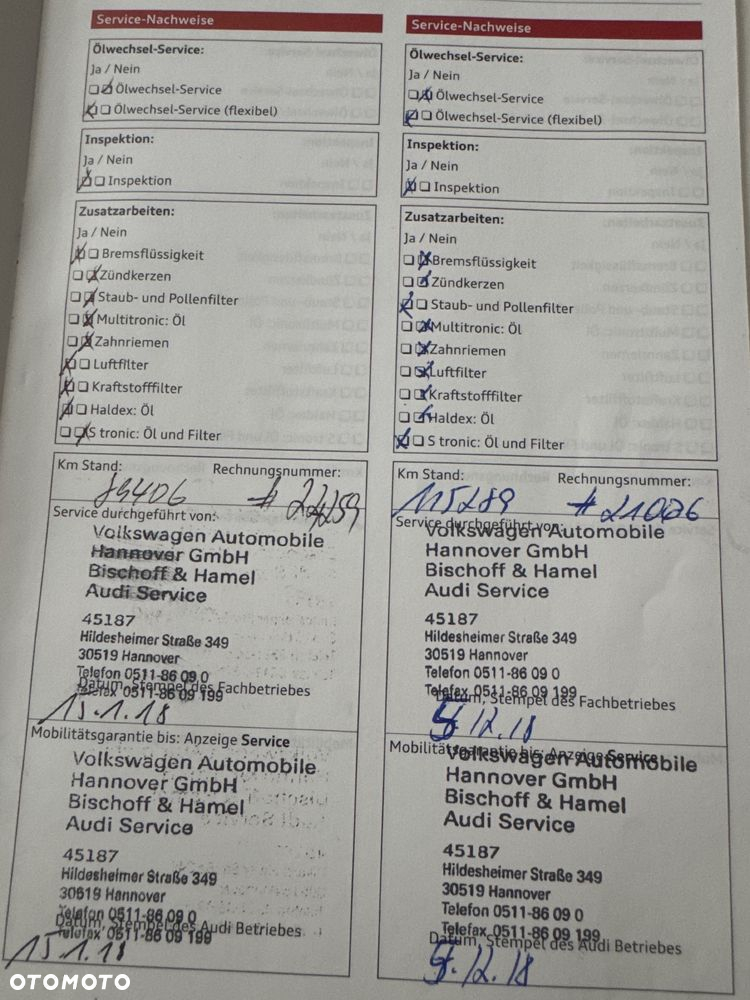 Service-Nachweise
Ölwechsel-Service:
Ja / Nein
Ölwechsel-Service
Ölwechsel-Service (flexibel)
Inspektion:
Ja / Nein
Inspektion
Zusatzarbeiten:
Ja / Nein
Bremsflüssigkeit
Zündkerzen
Staub- und Pollenfilter
Multitronic: Öl
Zahnriemen
Luftfilter
Kraftstofffilter
Haldex: Öl
S tronic: Öl und Filter
Km Stand: Rechnungsnummer:
89406 #
Service durchgeführt von:
Volkswagen Automobile
Hannover GmbH
Bischoff & Hamel
Audi Service
45187
Hildesheimer Straße 349
30519 Hannover
Telefon 0511-86 09 0
Telefax 0511-86 09 199
Datum, Stempel des Fachbetriebes
15.1.18
Mobilitätsgarantie bis: Anzeige Service
Volkswagen Automobile
Hannover GmbH
Bischoff & Hamel
Audi Service
45187
Hildesheimer Straße 349
30519 Hannover
Telefon 0511-86 09 0
Telefax 0511-86 09 199
Datum, Stempel des Audi Betriebes
15.1.18
Service-Nachweise
Ölwechsel-Service:
Ja / Nein
Ölwechsel-Service
Ölwechsel-Service (flexibel)
Inspektion:
Ja / Nein
Inspektion
Zusatzarbeiten:
Ja / Nein
Bremsflüssigkeit
Zündkerzen
Staub- und Pollenfilter
Multitronic: Öl
Zahnriemen
Luftfilter
Kraftstofffilter
Haldex: Öl
S tronic: Öl und Filter
Km Stand: Rechnungsnummer:
115289 #21006
Service durchgeführt von:
Volkswagen Automobile
Hannover GmbH
Bischoff & Hamel
Audi Service
45187
Hildesheimer Straße 349
30519 Hannover
Telefon 0511-86 09 0
Telefax 0511-86 09 199
Datum, Stempel des Fachbetriebes
12.18
Mobilitätsgarantie bis: Anzeige Service
Volkswagen Automobile
Hannover GmbH
Bischoff & Hamel
Audi Service
45187
Hildesheimer Straße 349
30519 Hannover
Telefon 0511-86 09 0
Telefax 0511-86 09 199
Datum, Stempel des Audi Betriebes
12.18
OTOMOTO